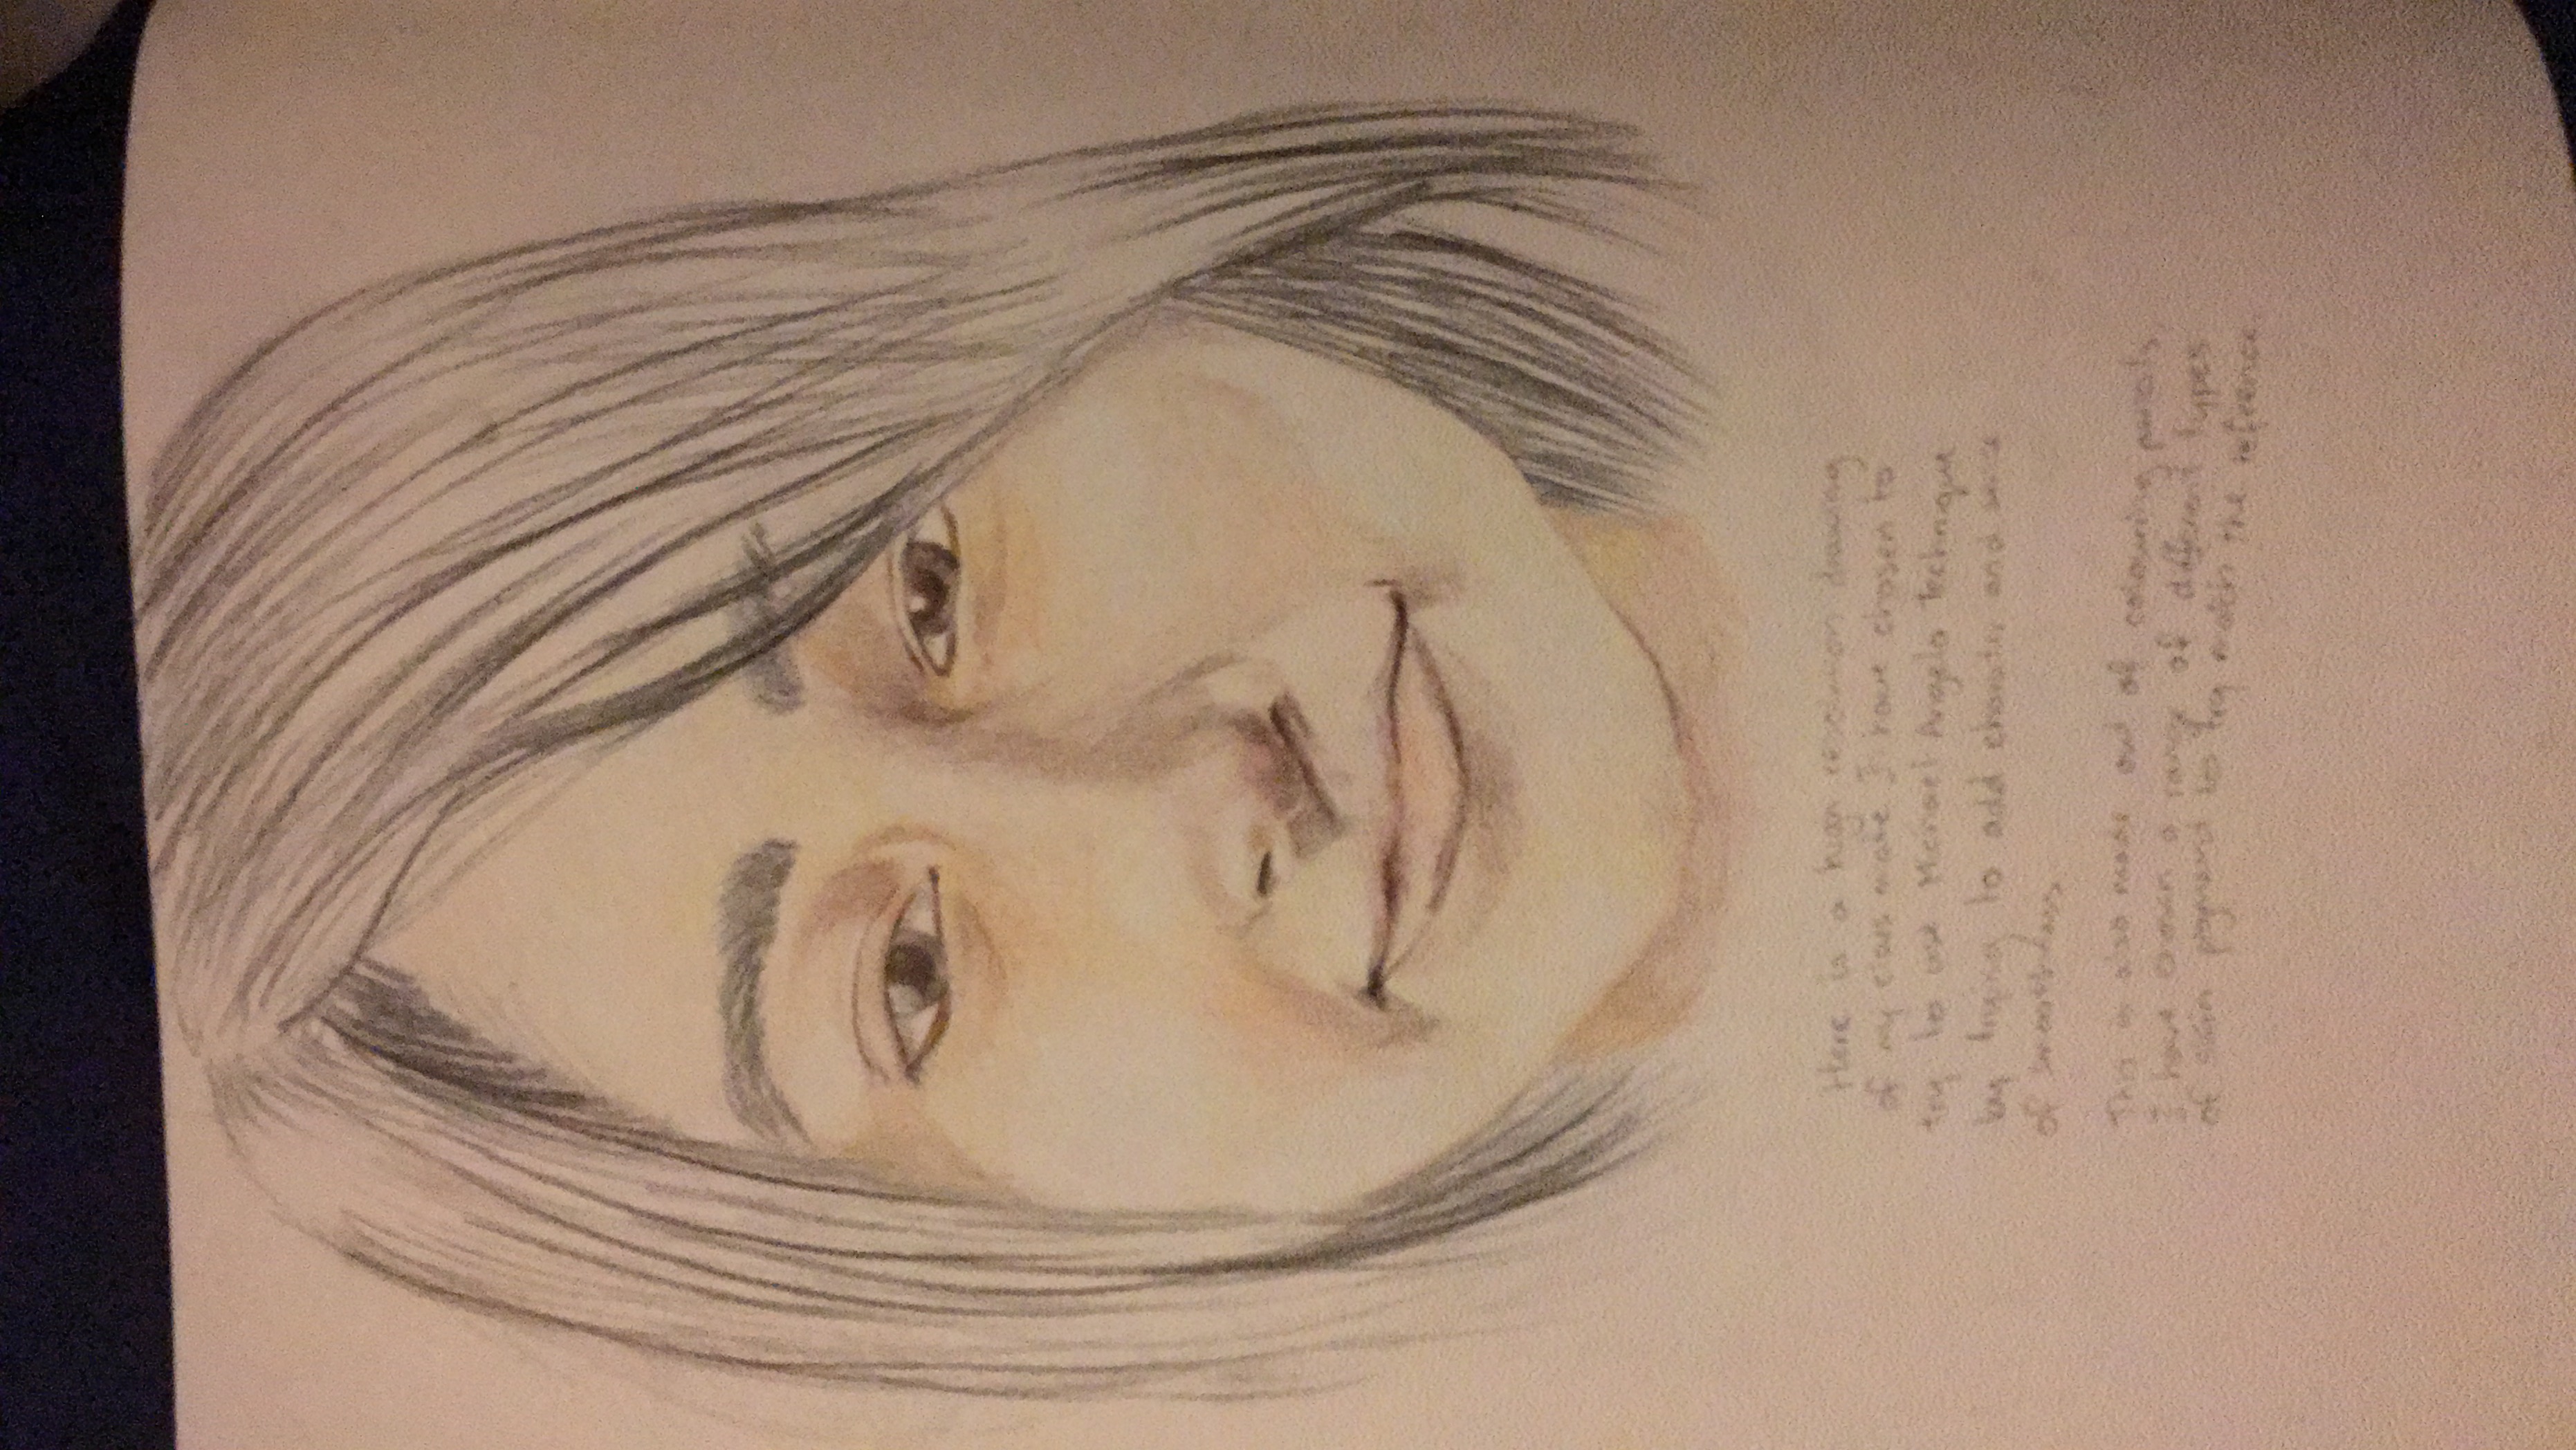 Here is a high resolution drawing
of my class mate I have chosen to
try to use Michael Angelo technique
by trying to add and
of smoothness
This is also made out of colouring pencils,
I have chosen a range of different types
of skin pigment to try match the refrence.